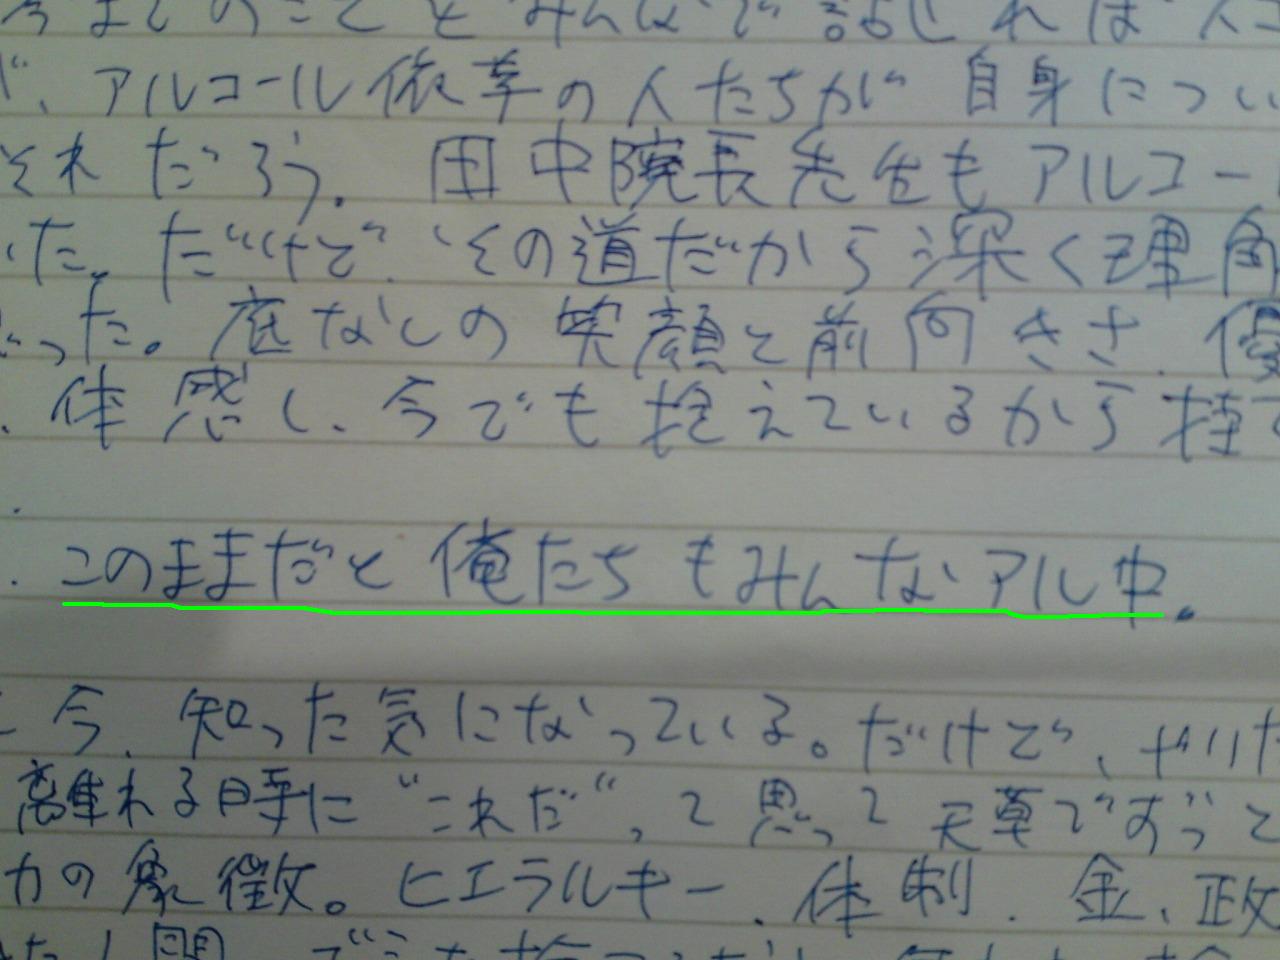 今までのことをみんなで話しれば人
、アルコール依存の人たちが 自身につい
それだろう. 田中院長先生もアルコー
いた。だけど、その道だから深く理解
った。底なしの 笑顔と前向きさ. 優
. 体感し、今でも抱えているから持て
. このままだと俺たちもみんなアル中.
今、知った気になっている。だけど、やりた
離れる時に"これだ"、って思って天草でずっと
力の象徴。ヒエラルキー、体制. 金、政